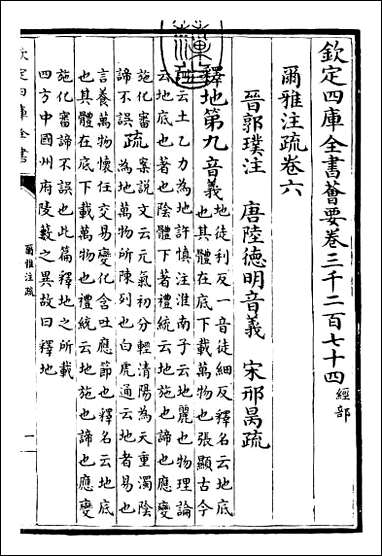 欽定四庫全書薈要卷三千二百七十四 經部
爾雅注疏卷六
晉郭璞注 唐陸徳明音義 宋邢昺疏
釋地第九 音義 地徒利反一音徒細反釋名云地底
也其體在底下載萬物也張顯古今
云土乙力為地許慎注淮南子云地麗也物理論
云地底也著也陰體下著禮統云地施也諦也應變
施化審
諦不誤
疏
案説文云元氣初分輕清陽為天重濁陰
為地萬物所陳列也白虎通云地者易也
言養萬物懷任交易變化含吐應節也釋名云地底
也其體在底下載萬物也禮統云地施也諦也應變
施化審諦不誤也此篇釋地之所載
四方中國州府陵藪之異故曰釋地
欽定四庫全書
爾雅注疏
一